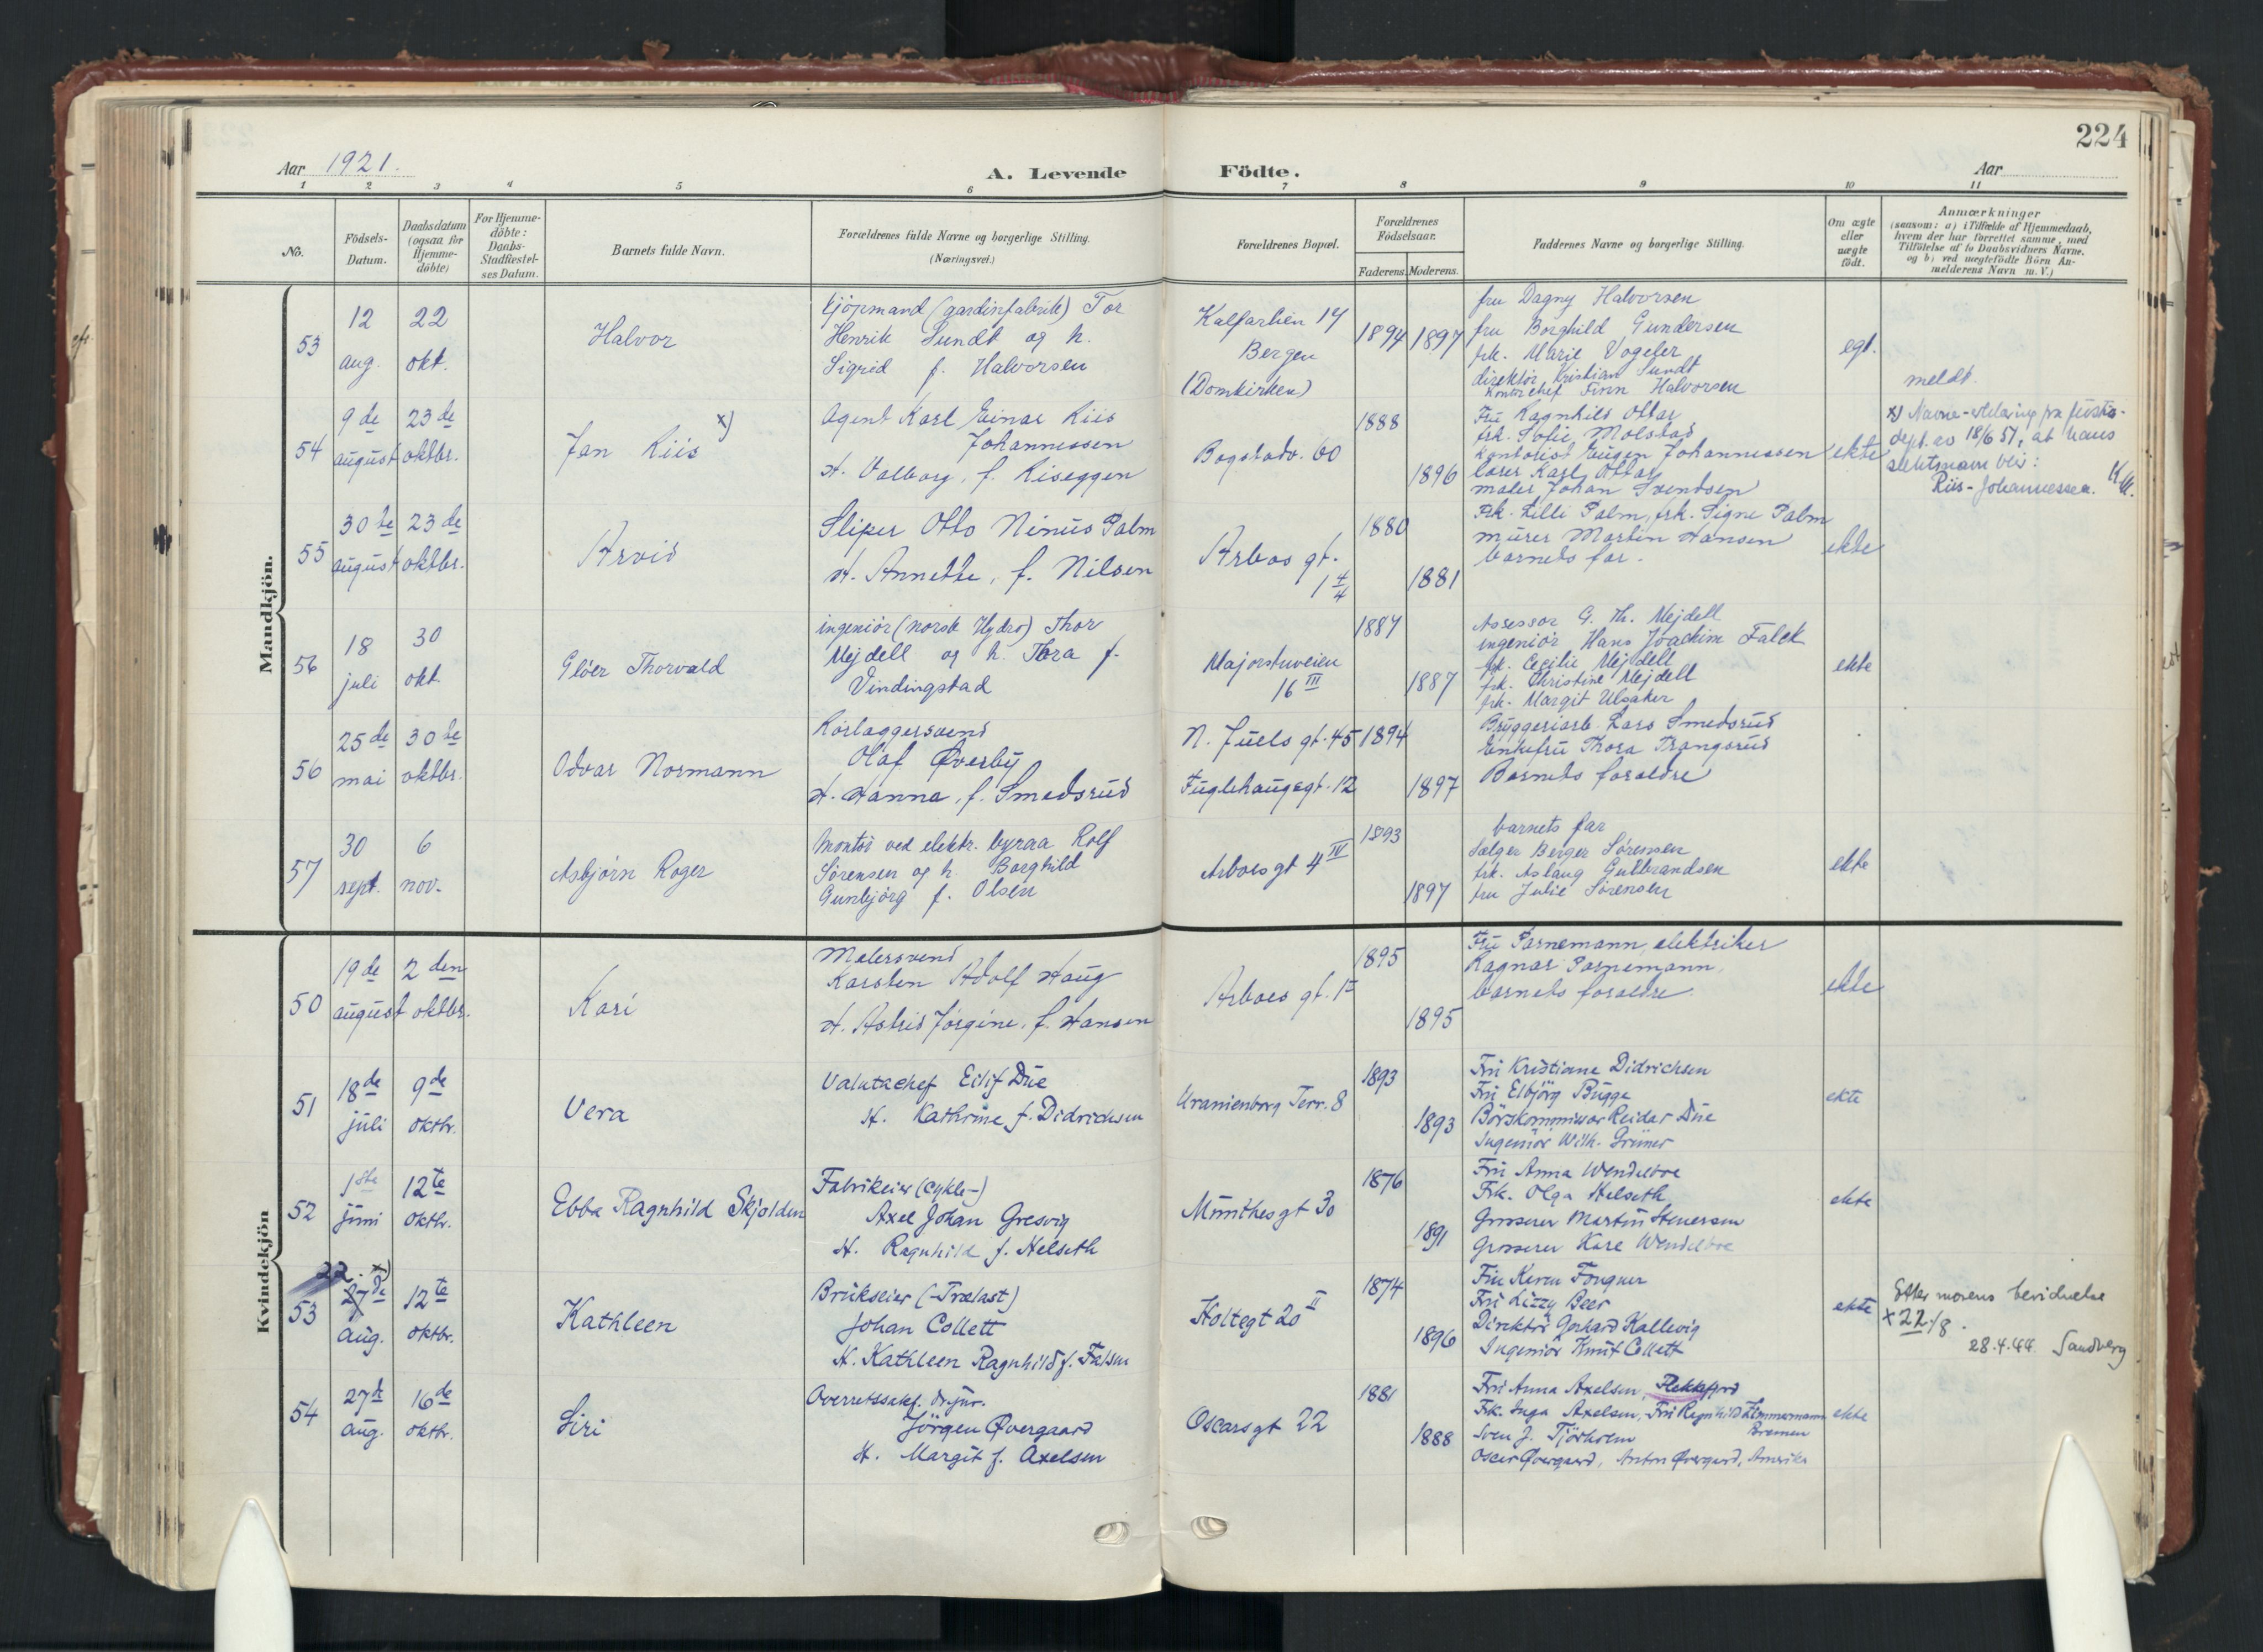 224
Aar 1921.
A. Levende Födte.
Aar
1 2 3 4 5 6 7 8 9 10 11
No.
Födsels-Datum.
Daabsdatum (ogsaa for Hjemme-döbte)
For Hjemme-döbte: Daabs-Stadfæstel-ses Datum.
Barnets fulde Navn.
Forældrenes fulde Navne og borgerlige Stilling.
(Næringsvei.)
Forældrenes Bopæl.
Forældrenes Födselsaar.
Faderens. Moderens.
Faddernes Navne og borgerlige Stilling.
Om ægte eller uægte födt.
Anmærkninger
(saasom: a) i Tilfælde af Hjemmedaab, hvem der har forrettet samme, med Tilföielse af to Daabsvidners Navne, og b) ved uægtefödte Börn Anmelderens Navn m. V.)
Mandkjön.
53
12 aug.
22 okt.
Halvor
kjöpmand (gardinfabrik) Tor
Henrik Sundt og h.
Sigrid f. Halvorsen
Kalfarlien 14
Bergen
(Domkirken)
1894 1897
fru Dagny Halvorsen
fru Borghild Gundersen
frk. Marie Vogeler
direktör Kristian Sundt
kontorchef Finn Halvorsen
egt.
meldt.
54
9de august
23de oktbr.
Jan Riis x)
Agent Karl Einar Riis
Johannessen
H. Valborg, f. Riseggen
Bogstadv. 60
1888
1896
Fru Ragnhild Ottar
frk. Sofie Molstad
Kontorist Eugen Johannessen
Karl Ottar
maler Johan Svendsen
ekte
x) Navne- fra justis-
dept. av 18/6 51, at hans
slektsnavn blir:
Riis-Johannessen. KM.
55
30te august
23de oktbr.
Arvid
Sliper Otto Ninus Palm
H. Annette, f. Nilsen
Arbos gt.
1 4/4
1880
1881
Frk. Lilli Palm, frk. Signe Palm
murer Martin Hansen
barnets far.
ekte
56
18 juli
30 okt.
Glöer Thorvald
ingeniör (norsk Hydro) Thor
Mejdell og h. Thora f.
Vindingstad
Majorstuveien
16 III
1887
1887
Assessor G. Th. Mejdell
ingeniör Hans Joachim Falck
frk. Cecilie Mejdell
frk. Christine Mejdell
frk. Margit Ulsaker
ekte
56
25de mai
30te oktbr.
Odvar Normann
Rörlaggersvend
Olaf Øverby
H. Hanna, f. Smedsrud
N. Juels gt. 45
Fuglehauggt. 12
1894
1897
Bryggeriarb. Lars Smedsrud
Enkefru Thora Trangsrud
Barnets foraldre
57
30 sept.
6 nov.
Asbjörn Roger
Montör ved elektr. byraa Rolf
Sörensen og h. Borghild
Gunbjörg f. Olsen
Arboes gt 4 IV
1893
1897
barnets far
Sælger Berger Sörensen
frk. Aslaug Gulbrandsen
fru Julie Sörensen
ekte
Kvindekjön
50
19de august
2den oktbr.
Kari
Malersvend
Karsten Adolf Haug
H. Astrid Jörgine, f. Hansen
Arboes gt. 1
1895
1895
Fru Parnemann, elektriker
Ragnar Parnemann,
barnets foraldre.
ekte
51
18de juli
9de oktbr.
Vera
Valutachef Eilif Due
H. Kathrine f. Didrichsen
Uranienborg Terr. 8
1893
1893
Fru Kristiane Didrichsen
Fru Elbjörg Bugge
Börskommissær Reidar Due
Ingeniör Wilh. Grüner
ekte
52
1ste juni
12te oktbr.
Ebba Ragnhild Skjolden
Fabrikeier (cykle-)
Axel Johan Gresvig
H. Ragnhild f. Helseth
Munthesgt 30
1876
1891
Fru Anna Wendelboe
Frk. Olga Helseth
Grosserer Martin Stenersen
Grosserer Kåre Wendelboe
ekte
53
22. x)
27de aug.
12te oktbr.
Kathleen
Brukseier (-Trælast)
Johan Collett
H. Kathleen Ragnhild f. Falsen
Holtegt 20 II
1874
1896
Fru Karen Fougner
Fru Lizzy Beer
Direktör Gerhard Kallevig
Ingeniör Knut Collett
ekte
Etter morens bevidnelse
x 22/8.
28.4.44. Sandberg
54
27de aug.
16de oktbr.
Siri
Overretssakf. dr. jur.
Jörgen Øvergaard
H. Margit f. Axelsen
Oscarsgt 22
1881
1888
Fru Anna Axelsen, Flekkefjord
Frk. Inga Axelsen, Fru Ragnhild Zimmermann
Bremen
Sven J. Tjörholm
Oscar Øvergaard, Anton Øvergaard, Amerika
ekte